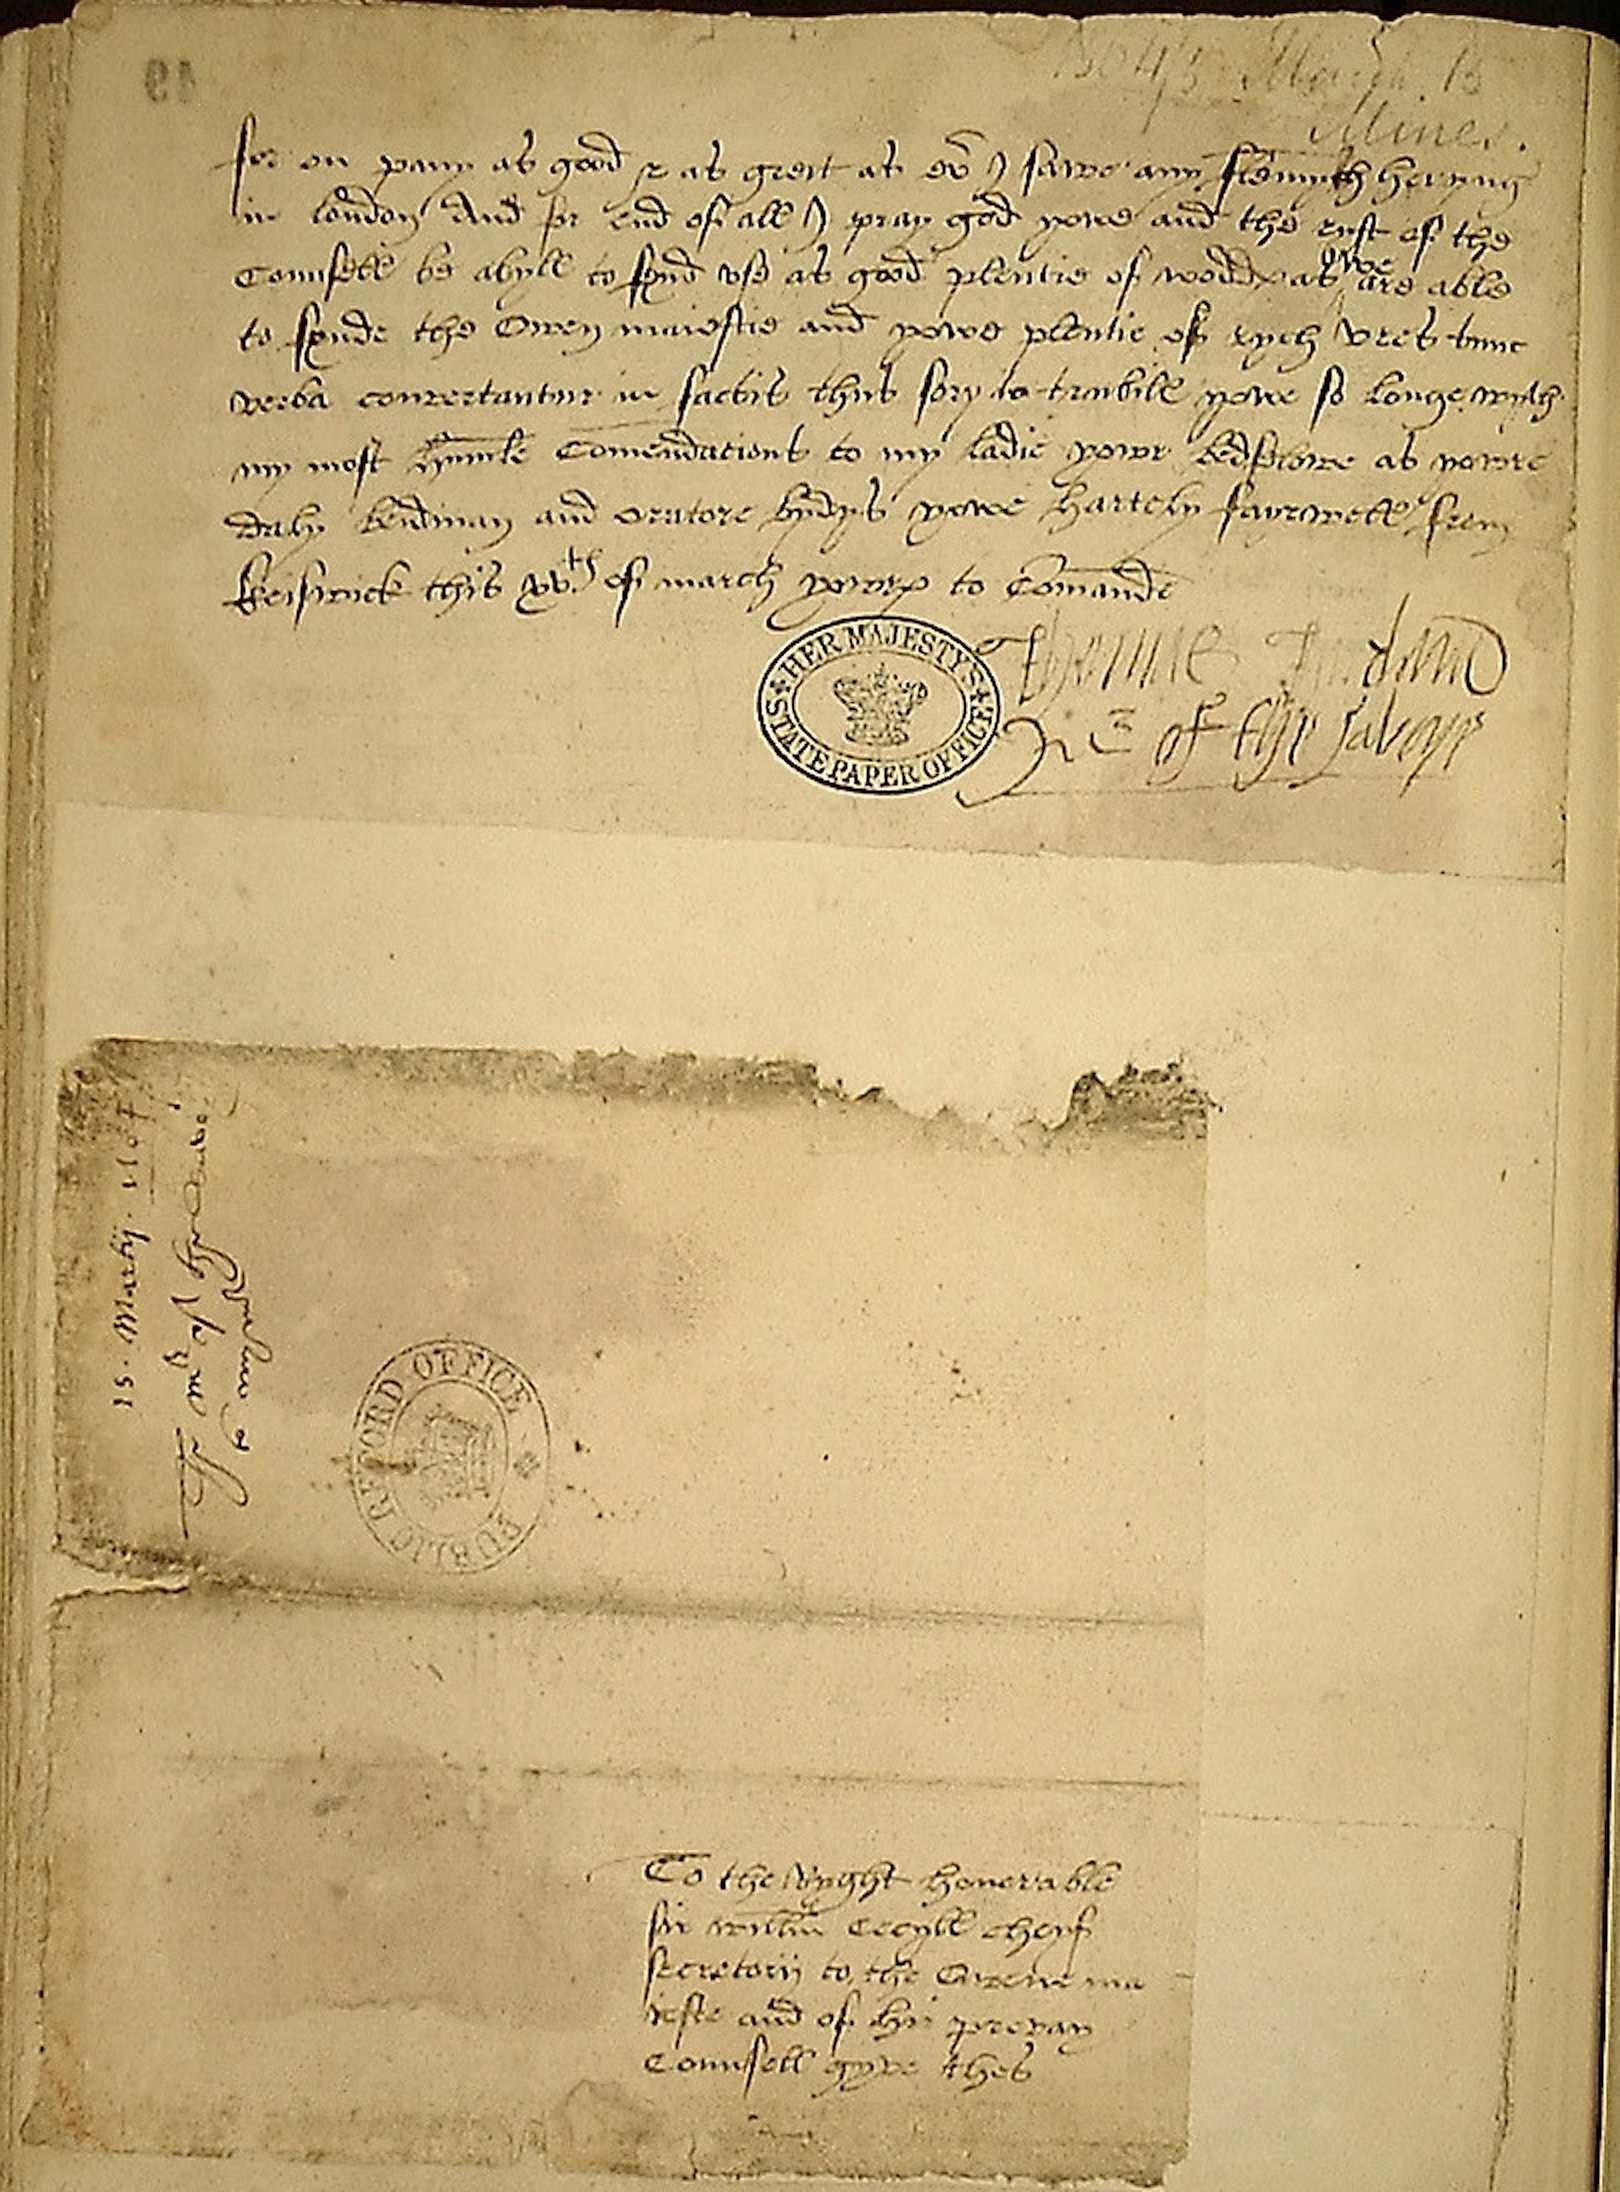 49
1564/5 March 15
Mines.
for on pany as good & as greit at ev̄ I sawe any flemysh heryng
in london And for end of all I pray god yowe and the rest of the
Counsell be abyll to fynd vse as good plentie of wodd as we are able
to fynde the Qwen maiestie and yowe plentie of rych vres tunc
verba convertantur in factis thus sory to trubill yowe so longe wyth
my most humle Comendacions to my ladie your bedfelowe as yowre
daly bedman and oratore byddys yowe hartely fayrwell from
keiswick this xv.th of march yowrs to Comande
Thomas Thurland
Mr of the savoye
HER MAJESTY'S
STATE PAPER OFFICE
15. Martij. 1564
Mr of ye Savoy
PUBLIC RECORD OFFICE
To the Ryght honorable
sir willm Cecyll cheyf
secretorij to the Qwene ma
ieste and of hir prevay
Counsell gyve thes